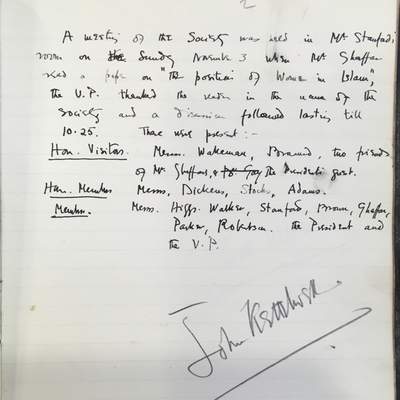 2
A meeting of the Society was held in Mr Stanford's
room on the Sunday November 3 when Mr Ghaffar
read a paper on "the position of Women in Islam",
the V.P. thanked the reader in the name of the
society and a discussion followed lasting till
10.25. There were present :-
Hon. Visitors. Messrs. Wakeman, two friends
of Mr. Ghaffar's, the President's guest.
Hon. Members Messrs. Dickens, Stocks, Adams.
Members. Messrs. Higgs. Walker, Stanford, Brown, Ghaffar,
Parker, Robertson. the President and
the V.P.
John